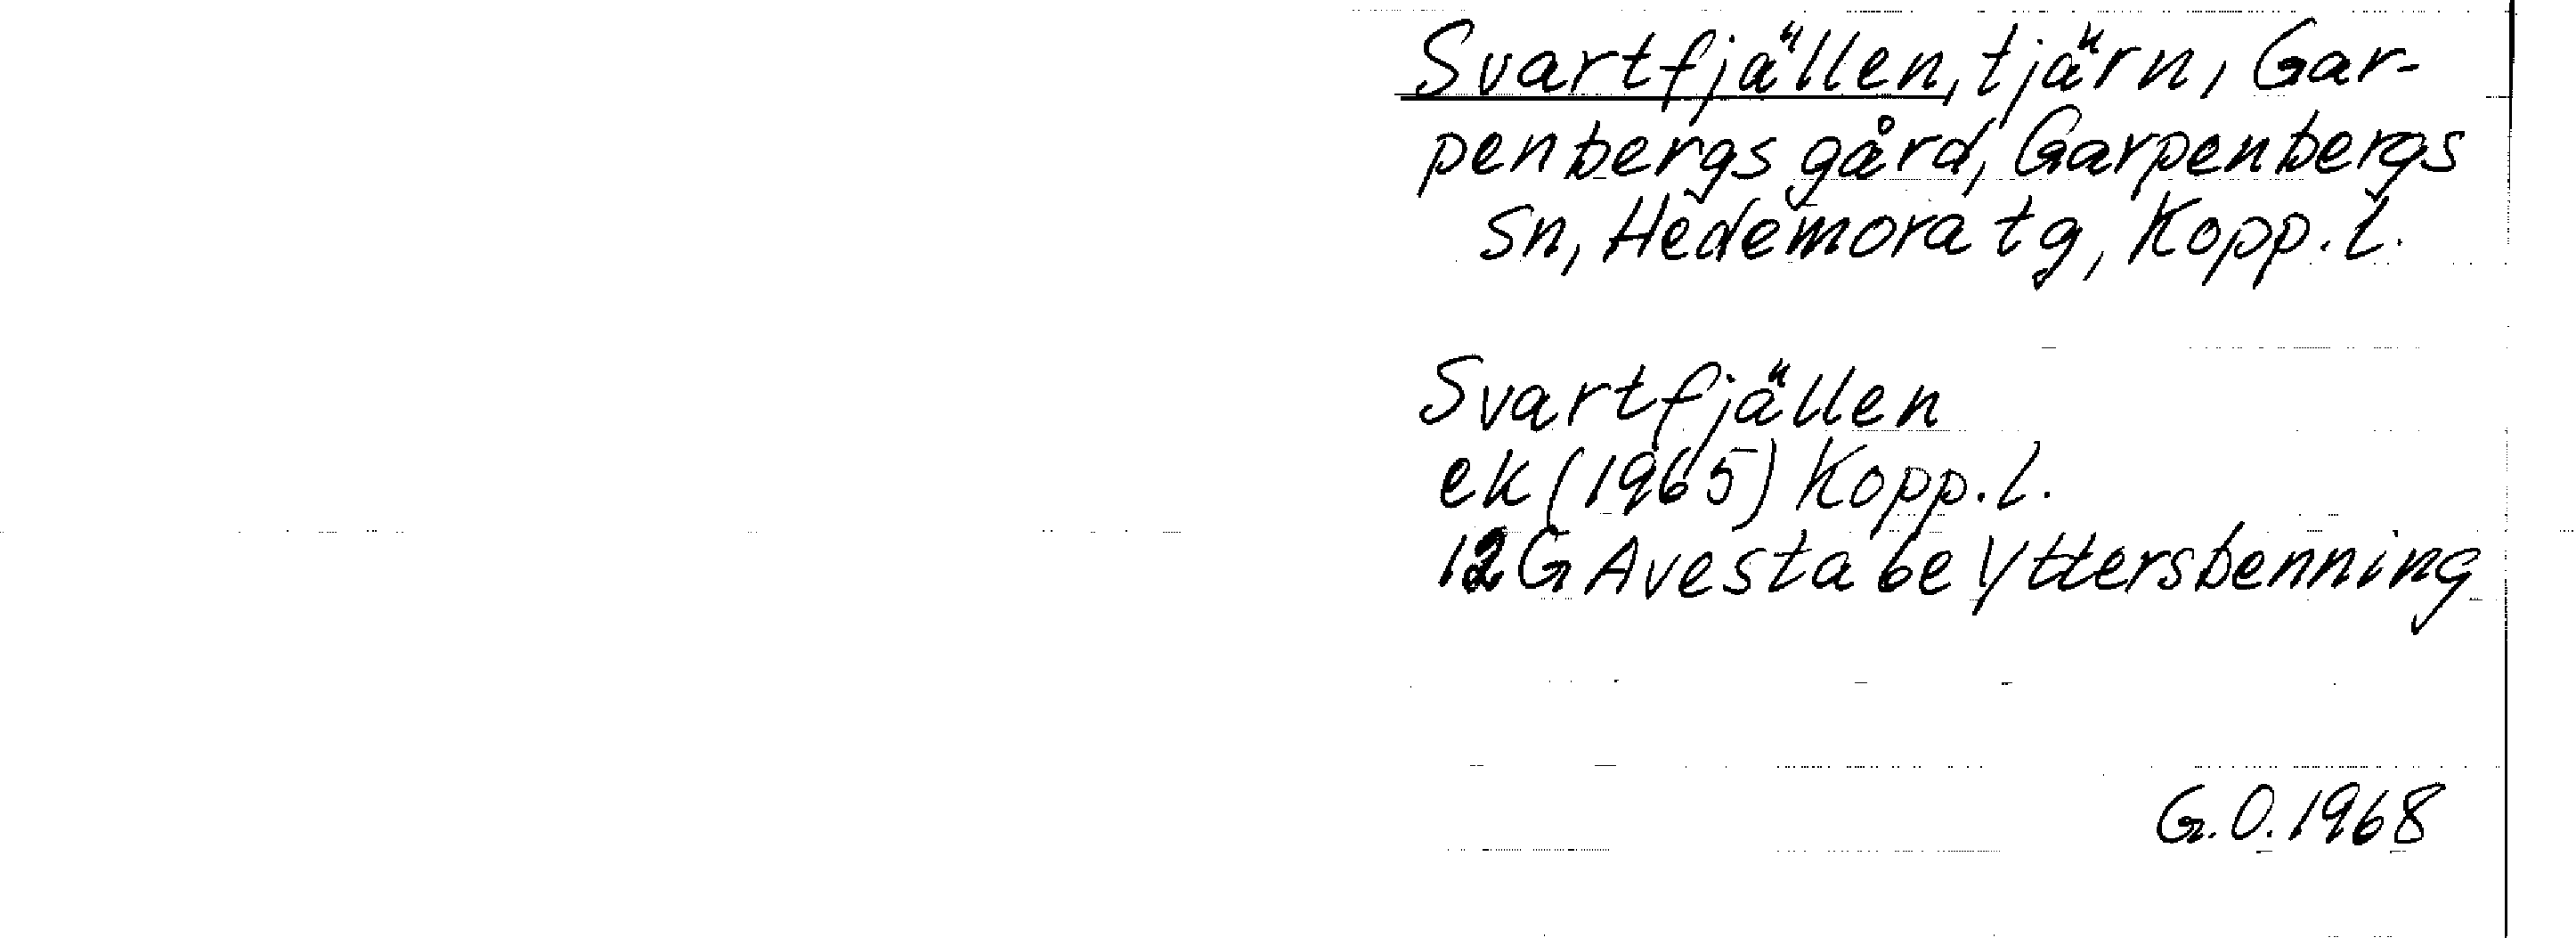 Svartfjällen, tjärn, Gar-
penbergs gård, Garpenbergs
sn, Hedemora tg, Kopp. l.
Svartfjällen
ek (1965) Kopp. l.
12G Avesta 6e Yttersbenning
G.O. 1968